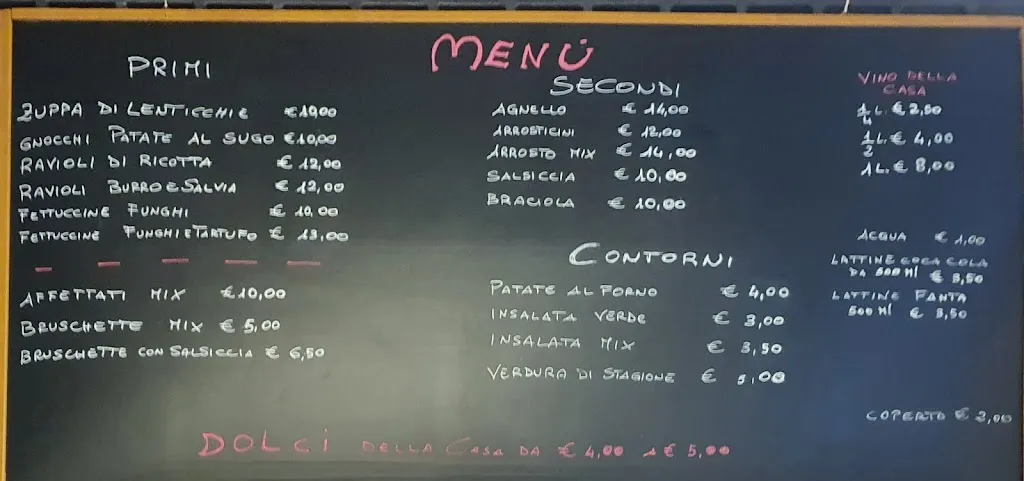 MENÙ
PRIMI
ZUPPA DI LENTICCHIE €10,00
GNOCCHI PATATE AL SUGO €10,00
RAVIOLI DI RICOTTA € 12,00
RAVIOLI BURRO E SALVIA € 12,00
FETTUCCINE FUNGHI € 10,00
FETTUCCINE FUNGHI E TARTUFO € 13,00
AFFETTATI MIX €10,00
BRUSCHETTE MIX € 5,00
BRUSCHETTE CON SALSICCIA € 6,50
SECONDI
AGNELLO € 14,00
ARROSTICINI € 12,00
ARROSTO MIX € 14,00
SALSICCIA € 10,00
BRACIOLA € 10,00
CONTORNI
PATATE AL FORNO € 4,00
INSALATA VERDE € 3,00
INSALATA MIX € 3,50
VERDURA DI STAGIONE €
VINO DELLA
CASA
1/4 L. € 2,50
1/2 L. € 4,00
1 L. € 8,00
ACQUA € 1,00
LATTINE COCA COLA
DA 500 Ml € 3,50
LATTINE FANTA
500 Ml € 3,50
COPERTO € 2,00
DOLCI DELLA CASA DA € 4,00 A € 5,00